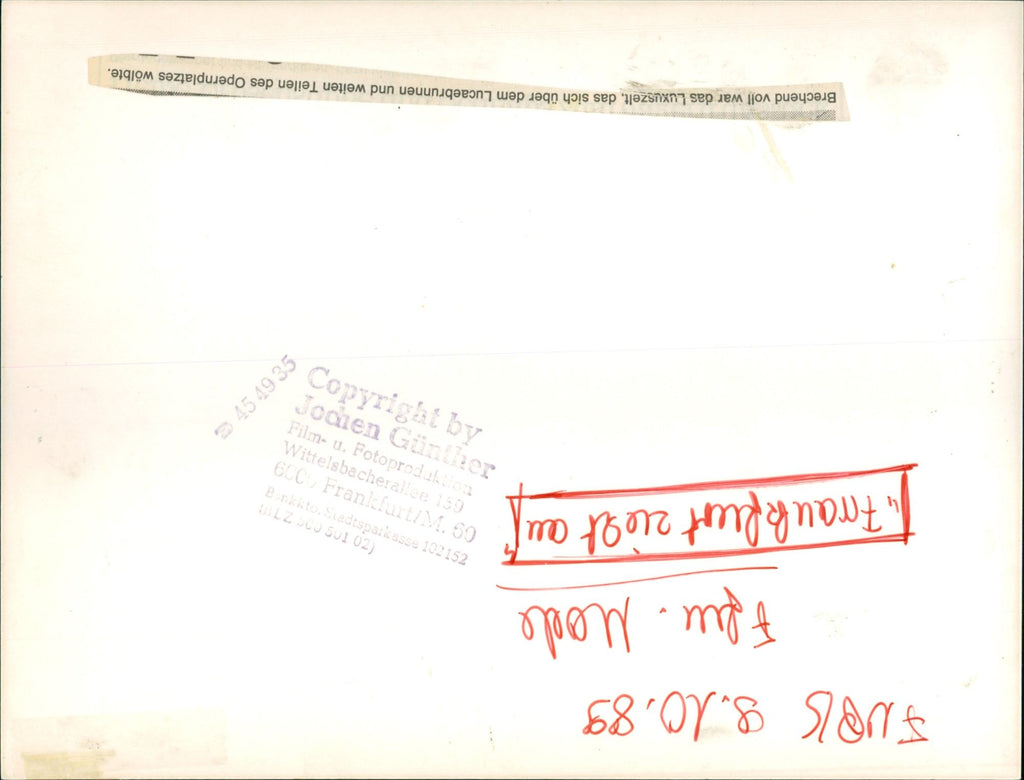 Brechend voll war das Luxuszelt, das sich über dem Lucaebrunnen und weiten Teilen des Opernplatzes wölbte.
☎ 45 49 35
Copyright by
Jochen Günther
Film- u. Fotoproduktion
Wittelsbacherallee 159
6000 Frankfurt/M. 60
Bankkto. Stadtsparkasse 102152
(BLZ 500 501 02)
.10.89
Ffm. Mode
„Frankfurt zieht an“